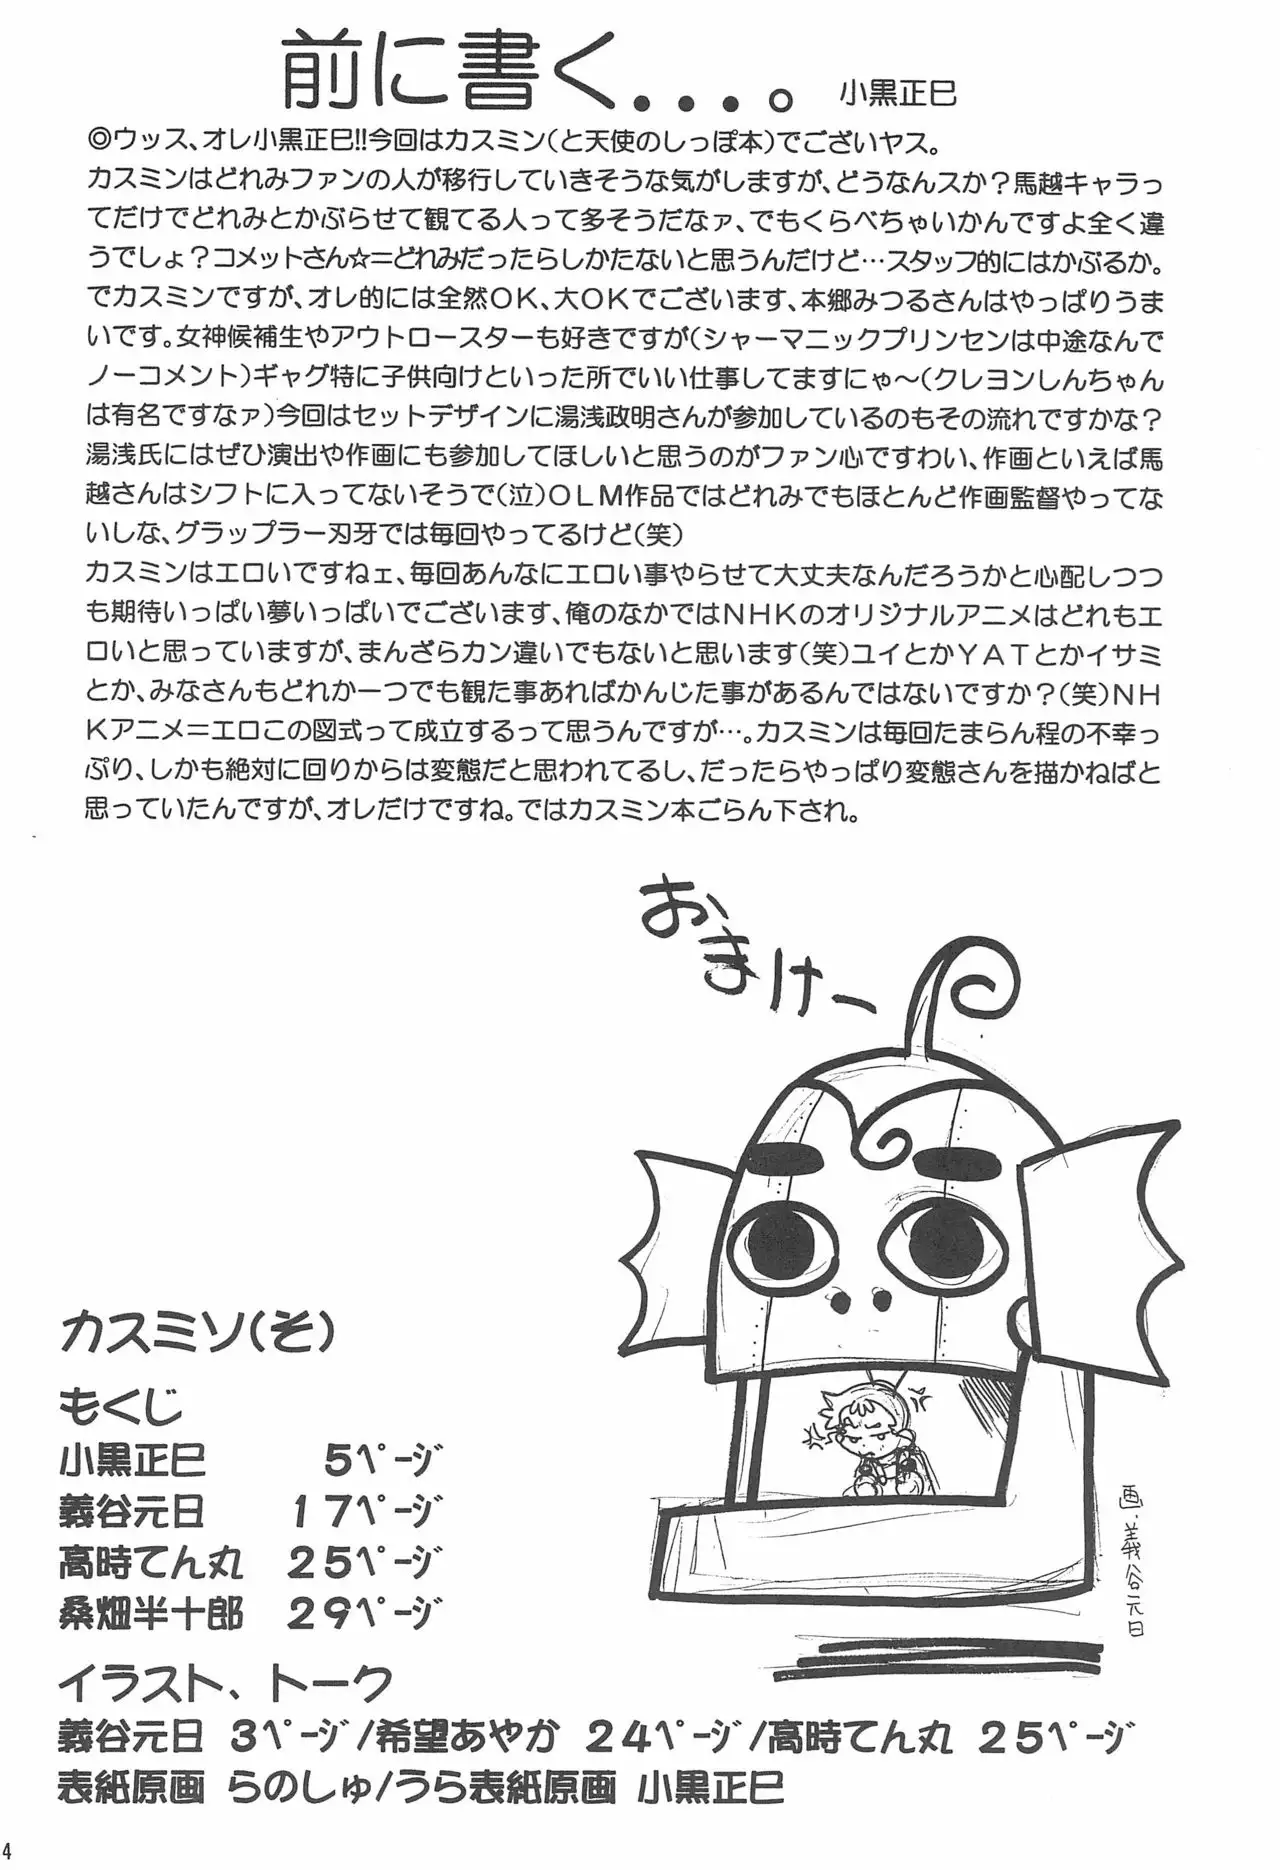 前に書く...。 小黒正巳
◎ウッス、オレ小黒正巳!!今回はカスミン(と天使のしっぽ本)でございヤス。
カスミンはどれみファンの人が移行していきそうな気がしますが、どうなんスか?馬越キャラっ
てだけでどれみとかぶらせて観てる人って多そうだなァ、でもくらべちゃいかんですよ全く違
うでしょ?コメットさん☆=どれみだったらしかたないと思うんだけど…スタッフ的にはかぶるか。
でカスミンですが、オレ的には全然OK、大OKでございます、本郷みつるさんはやっぱりうま
いです。女神候補生やアウトロースターも好きですが(シャーマニックプリンセンは中途なんで
ノーコメント)ギャグ特に子供向けといった所でいい仕事してますにゃ〜(クレヨンしんちゃん
は有名ですなァ)今回はセットデザインに湯浅政明さんが参加しているのもその流れですかな?
湯浅氏にはぜひ演出や作画にも参加してほしいと思うのがファン心ですわい、作画といえば馬
越さんはシフトに入ってないそうで(泣)OLM作品ではどれみでもほとんど作画監督やってな
いしな、グラップラー刃牙では毎回やってるけど(笑)
カスミンはエロいですねェ、毎回あんなにエロい事やらせて大丈夫なんだろうかと心配しつつ
も期待いっぱい夢いっぱいでございます、俺のなかではNHKのオリジナルアニメはどれもエ
ロいと思っていますが、まんざらカン違いでもないと思います(笑)ユイとかYATとかイサミ
とか、みなさんもどれか一つでも観た事あればかんじた事があるんではないですか?(笑)NH
Kアニメ=エロこの図式って成立するって思うんですが…。カスミンは毎回たまらん程の不幸っ
ぷり、しかも絶対に回りからは変態だと思われてるし、だったらやっぱり変態さんを描かねばと
思っていたんですが、オレだけですね。ではカスミン本ごらん下され。
おまけー
画・義谷元日
カスミソ(そ)
もくじ
小黒正巳 5ページ
義谷元日 17ページ
高時てん丸 25ページ
桑畑半十郎 29ページ
イラスト、トーク
義谷元日 3ページ/希望あやか 24ページ/高時てん丸 25ページ
表紙原画 らのしゅ/うら表紙原画 小黒正巳
4